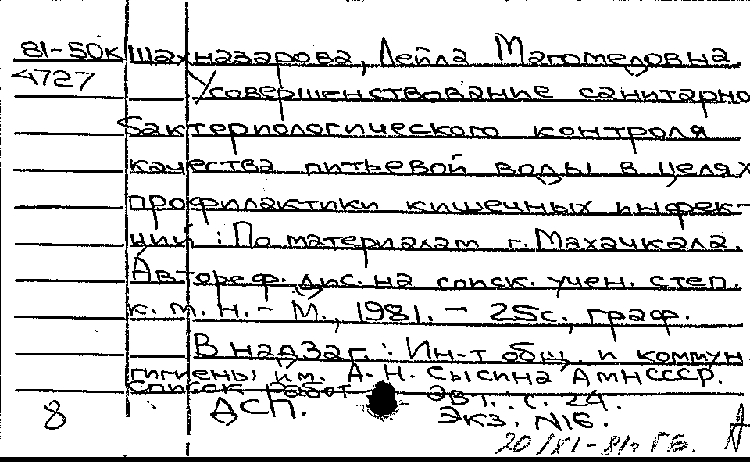 81-50к Шахназарова, Лейла Магомедовна.
4727 Усовершенствование санитарно
бактериологического контроля
качества питьевой воды в целях
профилактики кишечных инфек-
ций : По материалам г. Махачкала.
Автореф. дис. на соиск. учен. степ.
к. м. н. - М., 1981. - 25с., граф.
В надзаг.: Ин-т общ. и коммун
гигиены им. А. Н. Сысина АМНСССР.
Список работ авт.: с. 24.
8 ДСП. Экз. №16.